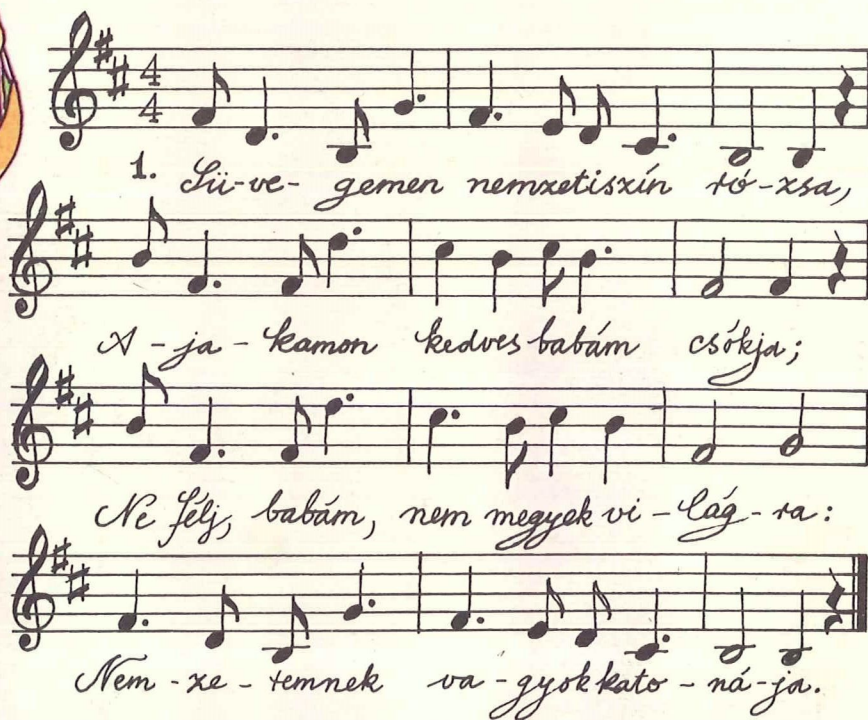 4
4
1. Sü-ve- gemen nemzetiszín ró-zsa,
A-ja-kamon kedves babám csókja;
Ne félj, babám, nem megyek vi-lág-ra:
Nem-ze-temnek va-gyok kato-ná-ja.